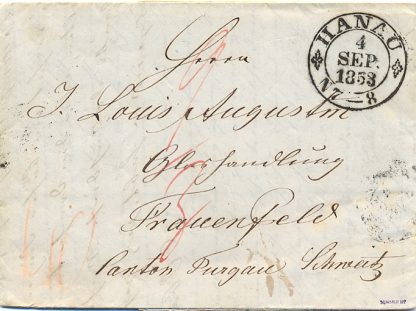 HANAU
4
SEP.
1853
N7—8
Herrn
J. Louis Augustin
Glashandlung
Frauenfeld
Canton Turgau Schweitz